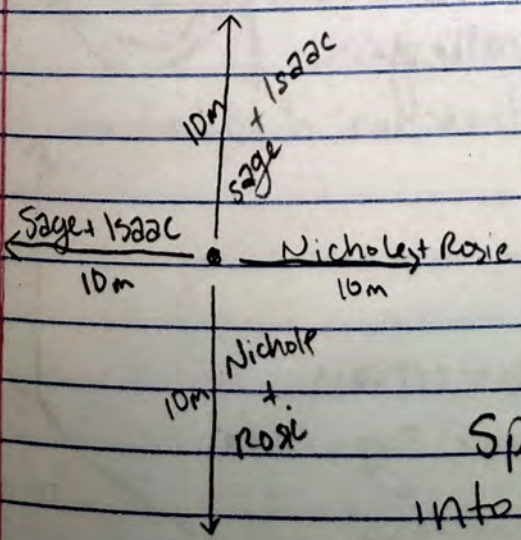 10m
sage + Isaac
Sage + Isaac
10m
Nichole + Rosie
10m
10m
Nichole
+
Rosie
Sp
into